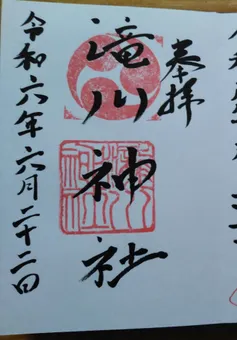 奉拝
滝川神社
令和六年六月二十二日